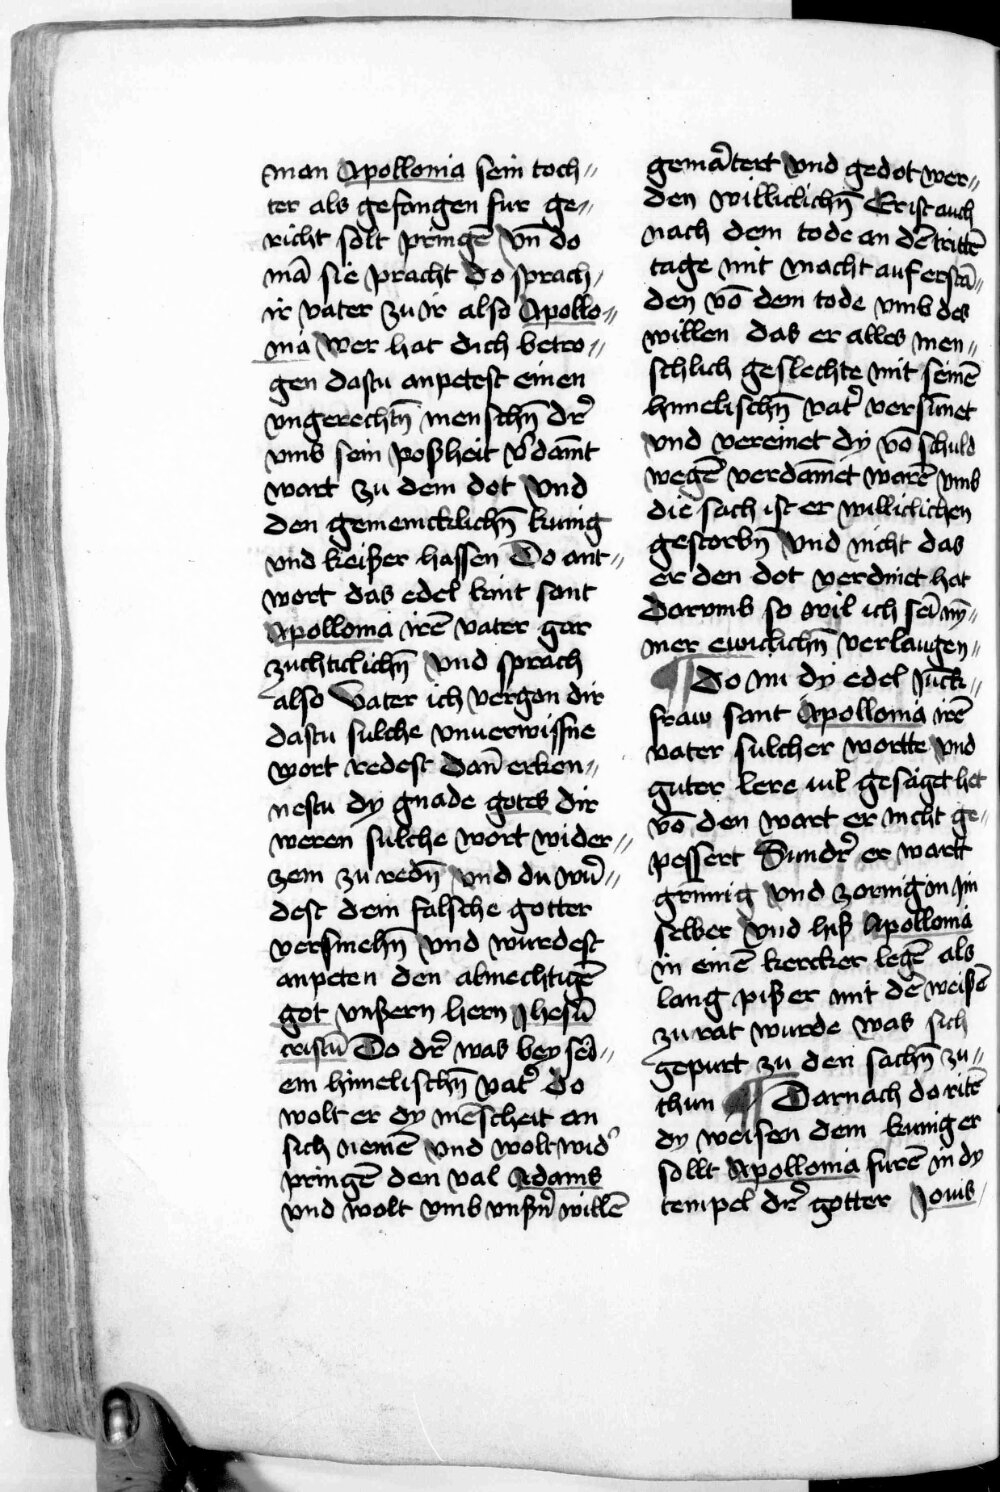 man Apollonia sein toch〃
ter als gefangen fur ge〃
richt solt pringē vn̄ do
mā sie pracht do sprach
ir vater zu ir also Apollo〃
nia wer hat dich betro〃
gen dastu anpetest einen
vngerechtn̄ menschn̄ dr̄
vmb sein poßheit v̄damt
wart zu dem dot vnd
den gemeincklichn̄ kunig
vnd keißer hassen Do ant〃
wort das edel kint sant
Apollonia irē vater gar
zuchticlichn̄ vnd sprach
also Vater ich vergan dir
dastu sulche vnuerwissne
wort redest dan̄ erken〃
nestu dy gnade gotes dir
weren sulche wort wider〃
zem zu redn̄ vnd du wu̅〃
dest dein falsche gotter
versmehn̄ vnd wurdest
anpeten den almechtigē
got vnßern hern Jhesū
cristū Do dr̄ was bey sei〃
em himelischn̄ vat̾ do
wolt er dy mēscheit an
sich nemē vnd wolt wid̾
pringē den val Adams
vnd wolt vmb vnßn̄ willē
gemārtert vnd gedot wer〃
den williclichn̄ Er ist auch
nach dem tode an dē trittē
tage mit macht auf erstā〃
den vō dem tode vmb des
willen das er alles men〃
schlich geslechte mit seinē
himelischn̄ vat̾ versūnet
vnd vereinet dy vō schuld
wegē verdāmet warē vmb
die sach ist er williclichen
gestorbn̄ vnd nicht das
er den dot verdinet hat
Darvmb so wil ich sein ny̅〃
mer ewiclichn̄ verlaugen〃
¶ Do nu dy edel Juck〃
fraw sant Apollonia irē
vater sulcher wortte vnd
guter lere vil gesaget het
vō den wart er nicht ge〃
pessert Sundr̄ er wartt
grimig vnd zornig in im
selber vnd liß Apollonia
in einē kercker legē als
lang piß er mit dē weißē
zu rat wurde was sich
gepurt zu den sachn̄ zu〃
thun ¶ Darnach do ritē
dy weisen dem kunig er
sollt Apollonia furē in dy
tempel dr̄ gotter Jouis